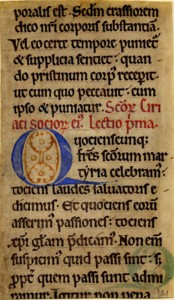 poralis est. Sedm̄ crassiorem
dico nr̄i corporis substantiā.
Vd eo certe tempore
& supplicia sentiet: quan
do pristinum corp⁹ recepit.
ut cum quo peccaui: cum
ipso & puniatur. Scōr̄ Ciri
aci socior̄ ei⁹. Lectio p̄ma.
Quocienscunq;
fr̄es scōrum mar
tyria celebram⁹.
tociens laudes saluatoris e
dicimus. Et quociens eorū
asserim⁹ passiones: tociens
xp̄i gl̄am p̄dicam⁹. Non em̄
suspicim⁹ quid passi sunt: s;
ꝓpt̄ quem passi sunt admi
ramur.